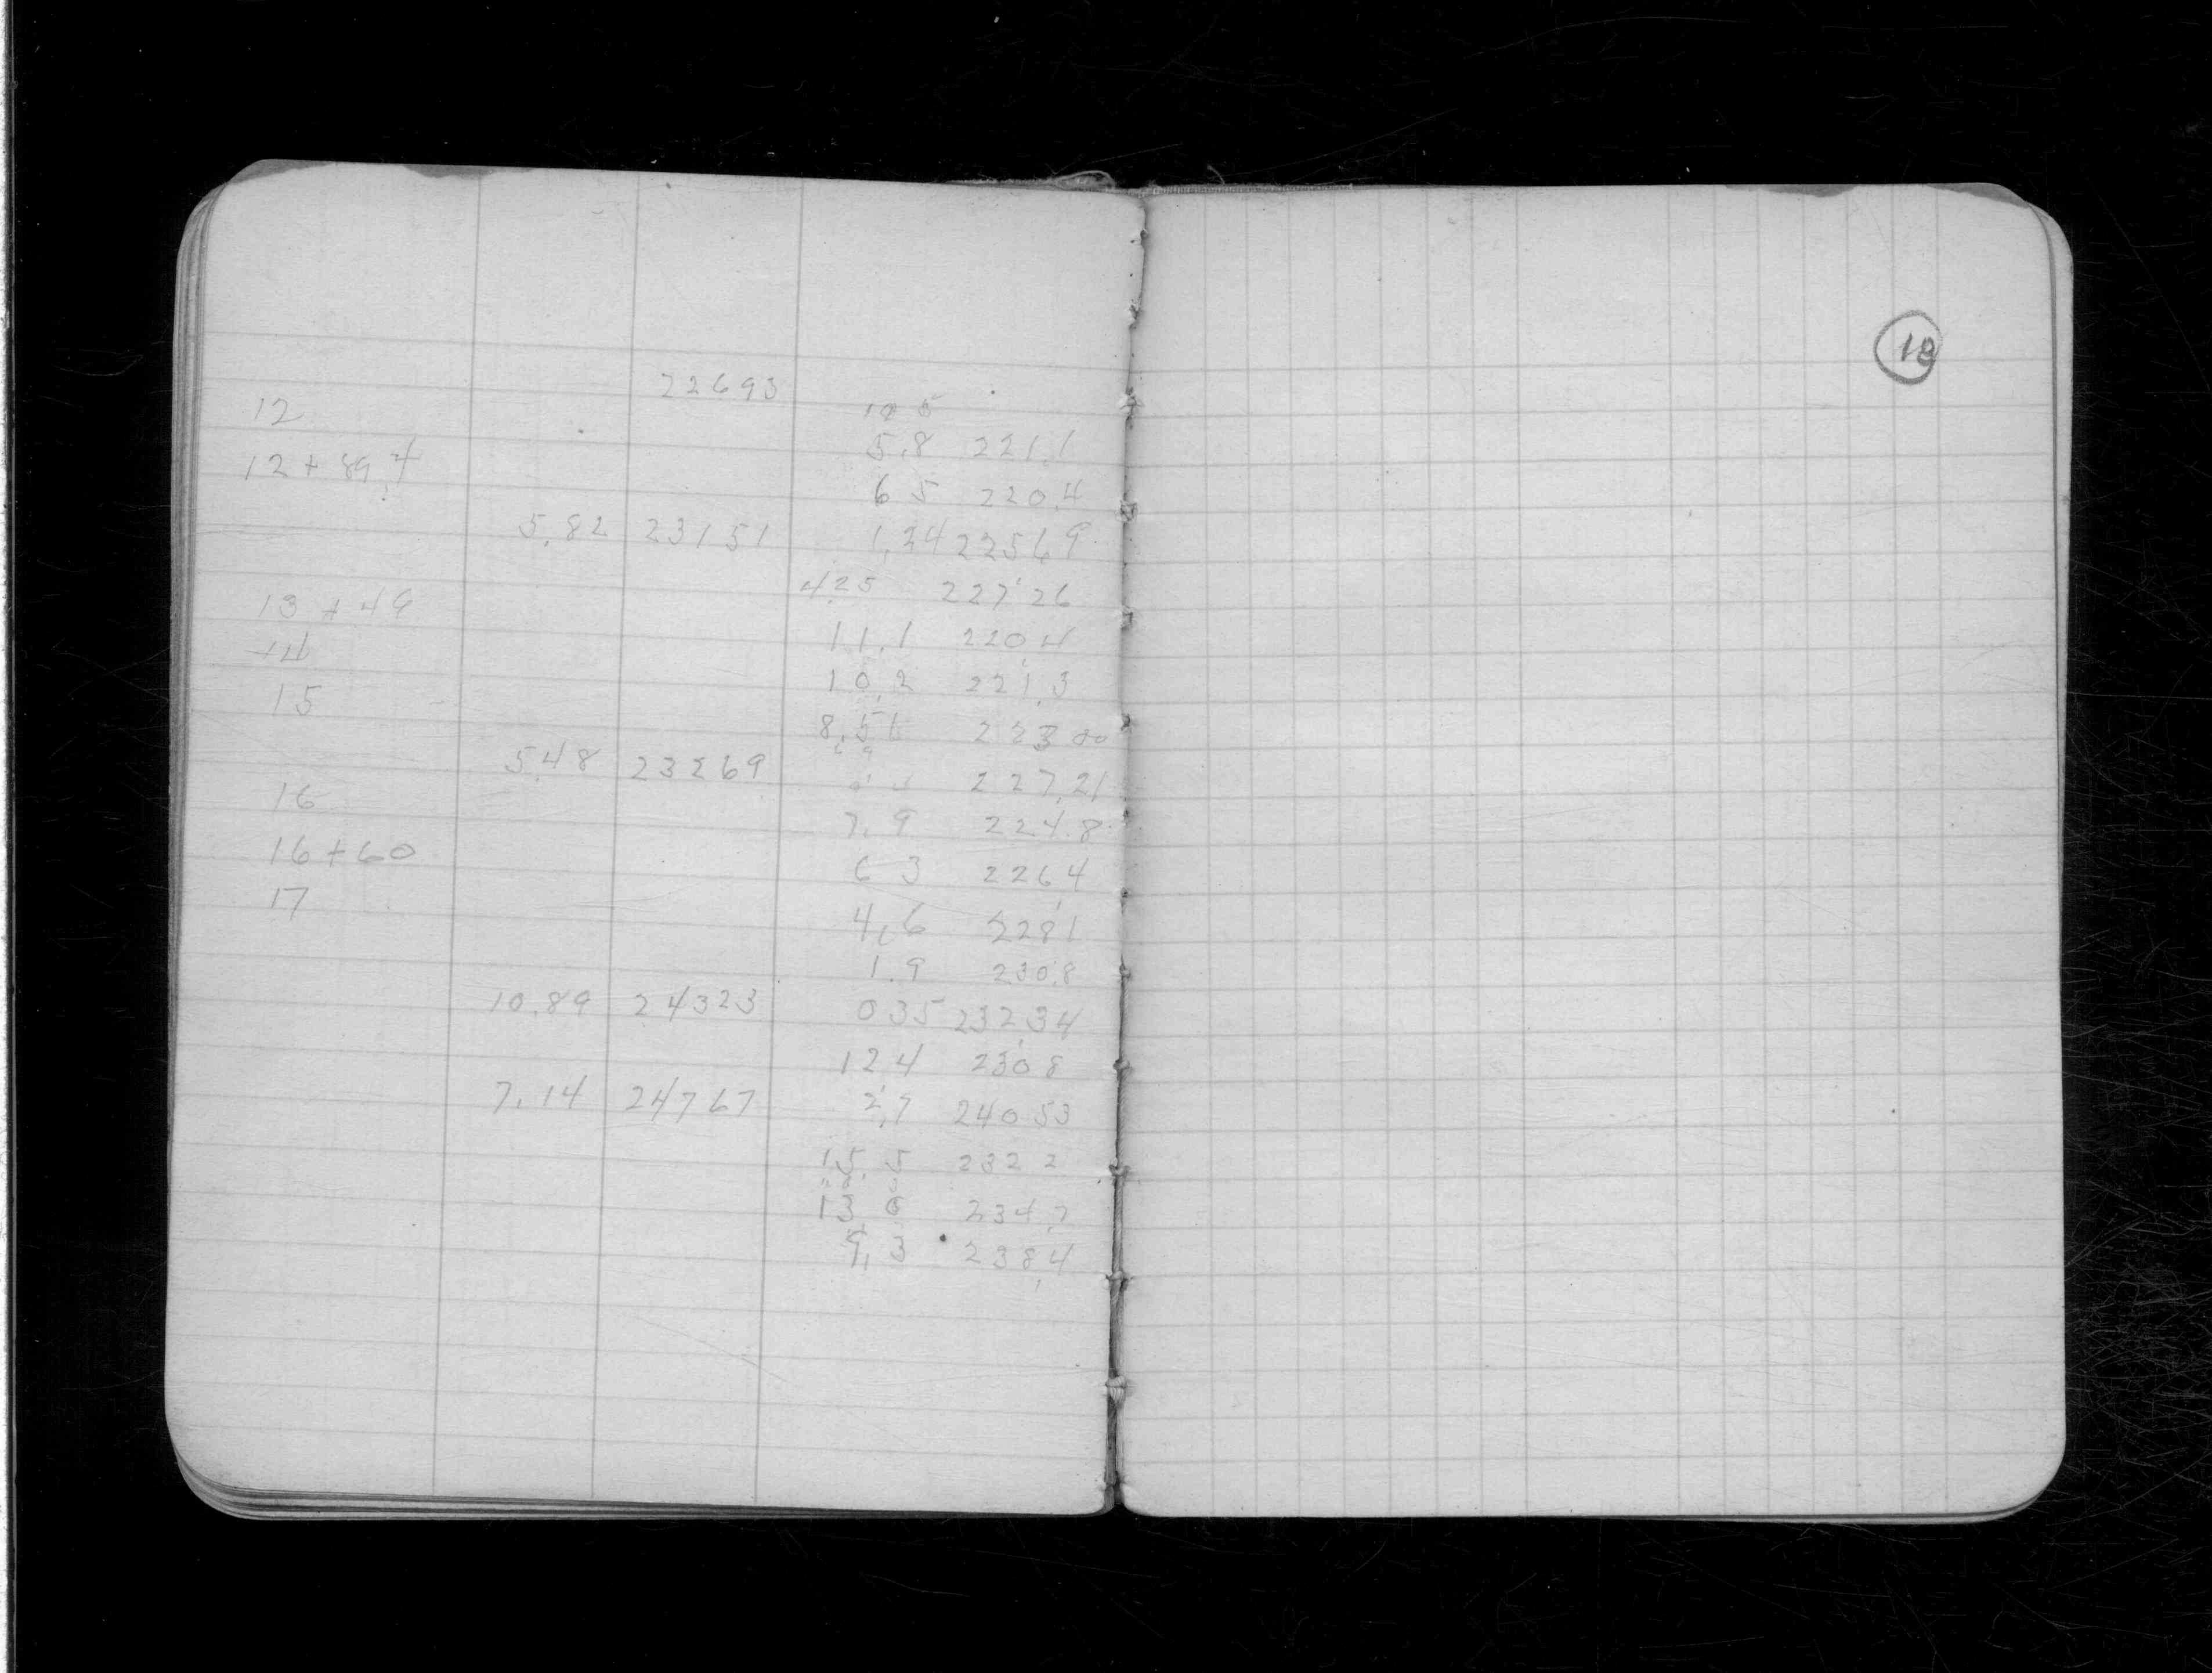 22693
12 12 5
5.8 221.1
12 + 89.4 6 5 220.4
5.82 23151 1.24 22569
4.25 227.26
13 + 49 11.1 220.4
14 10.2 221.3
15 8.51 223 00
5.48 23269 227.21
16 7.9 224.8
16 + 60 6 3 226.4
17 4.6 2281
1.9 230.8
10.89 24323 0 35 232 34
12 4 230.8
7.14 24767 2.7 240 53
15 5 232 2
13 0 234.7
9.3 238.4
18